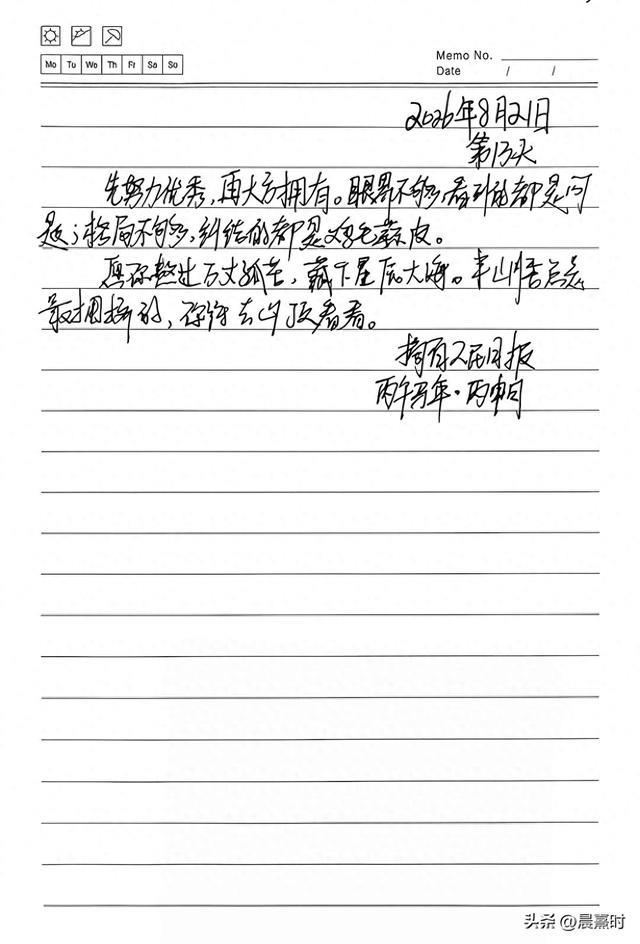 Mo Tu We Th Fr Sa So
Memo No.
Date / /
2026年8月21日
第13天
先努力优秀,再大方拥有。眼界不够,看到的都是问
题;格局不够,纠结的都是鸡毛蒜皮。
愿你熬过万丈孤苦,藏下星辰大海。半山腰总是
最拥挤的,你得去山顶看看。
摘自人民日报
丙午马年·丙申月
头条 @晨熹时